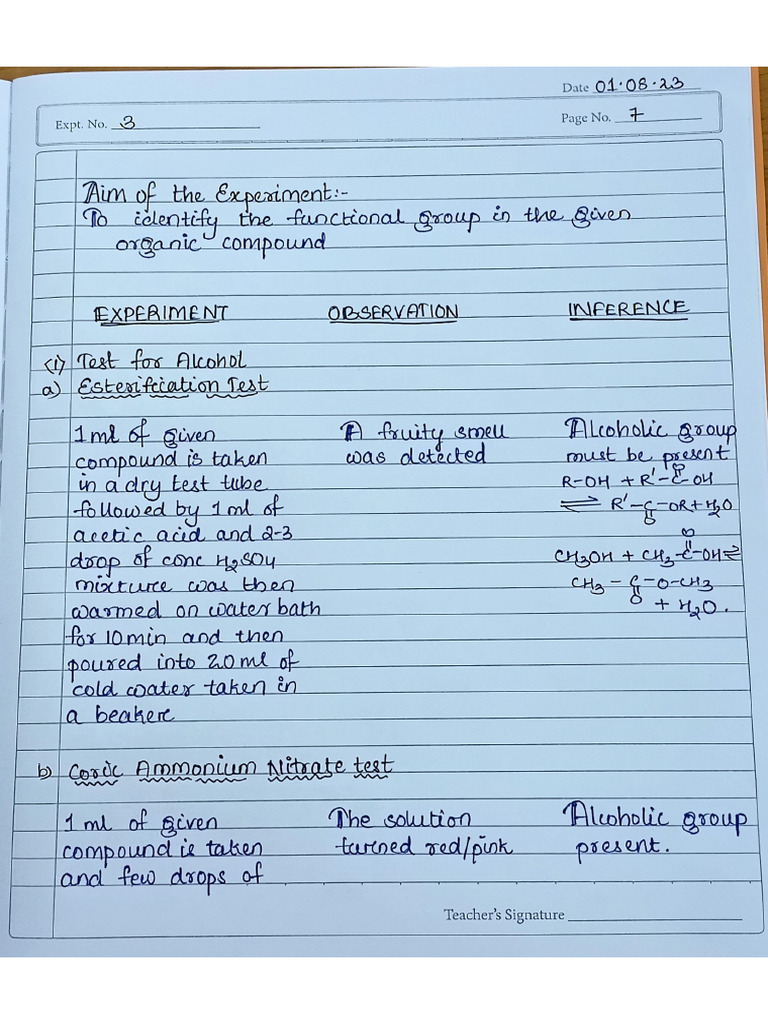 Date 01.08.23
Expt. No. 3
Page No. 7
Aim of the Experiment:-
To identify the functional group in the given
organic compound
EXPERIMENT OBSERVATION INFERENCE
(1) Test for Alcohol
a) Esterifciation Test
1 ml of given A fruity smell Alcoholic group
compound is taken was detected must be present
in a dry test tube R-OH + R'-C-OH
O
followed by 1 ml of ⇌ R'-C-OR + H2O
O
acetic acid and 2-3
drop of conc H2SO4 CH3OH + CH3-C-OH ⇌
O
mixture was then CH3 - C-O-CH3
O
warmed on water bath + H2O.
for 10 min and then
poured into 20 ml of
cold water taken in
a beakere
b) Ceric Ammonium Nitrate test
1 ml of given The solution Alcoholic group
compound is taken turned red/pink present.
and few drops of
Teacher's Signature